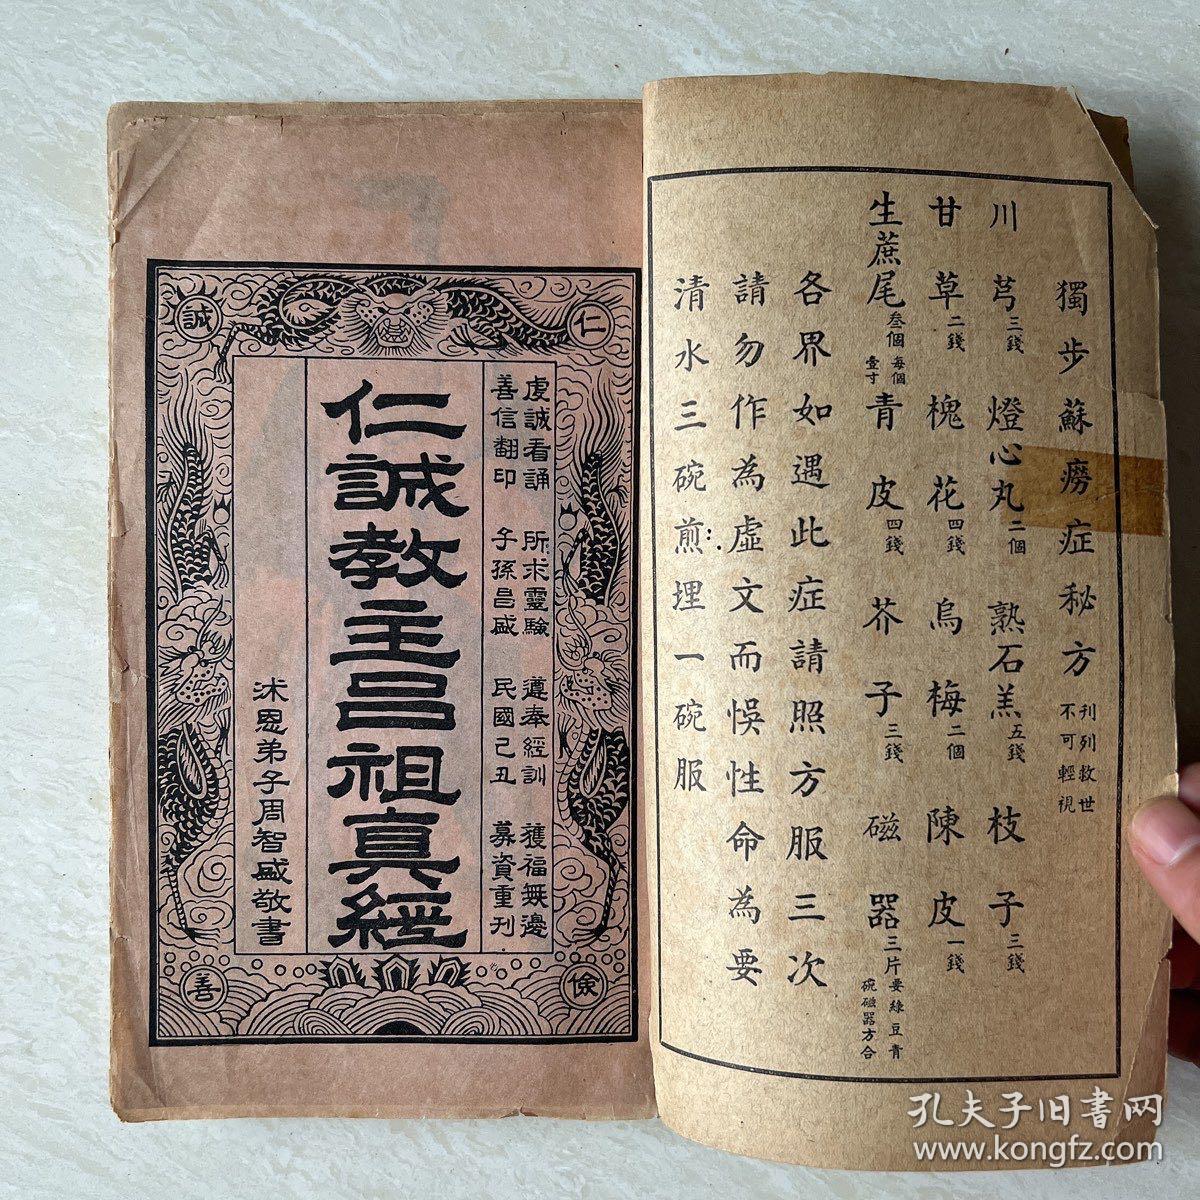 獨步蘇癆症秘方 刊列救世 不可輕視
川芎三錢 燈心丸二個 熟石羔五錢 枝子三錢
甘草二錢 槐花四錢 烏梅二個 陳皮一錢
生蔗尾叁個 每個壹寸 青皮四錢 芥子三錢 磁器三片 要綠豆青碗磁器方合
各界如遇此症請照方服三次
請勿作為虛文而悞性命為要
清水三碗煎埋一碗服
誠
仁
虔誠看誦 所求靈驗 遵奉經訓 獲福無邊
善信翻印 子孫昌盛 民國己丑 募資重刊
仁誠教主呂祖真經
沭恩弟子周智盛敬書
善
儉
孔夫子旧书网
www.kongfz.com